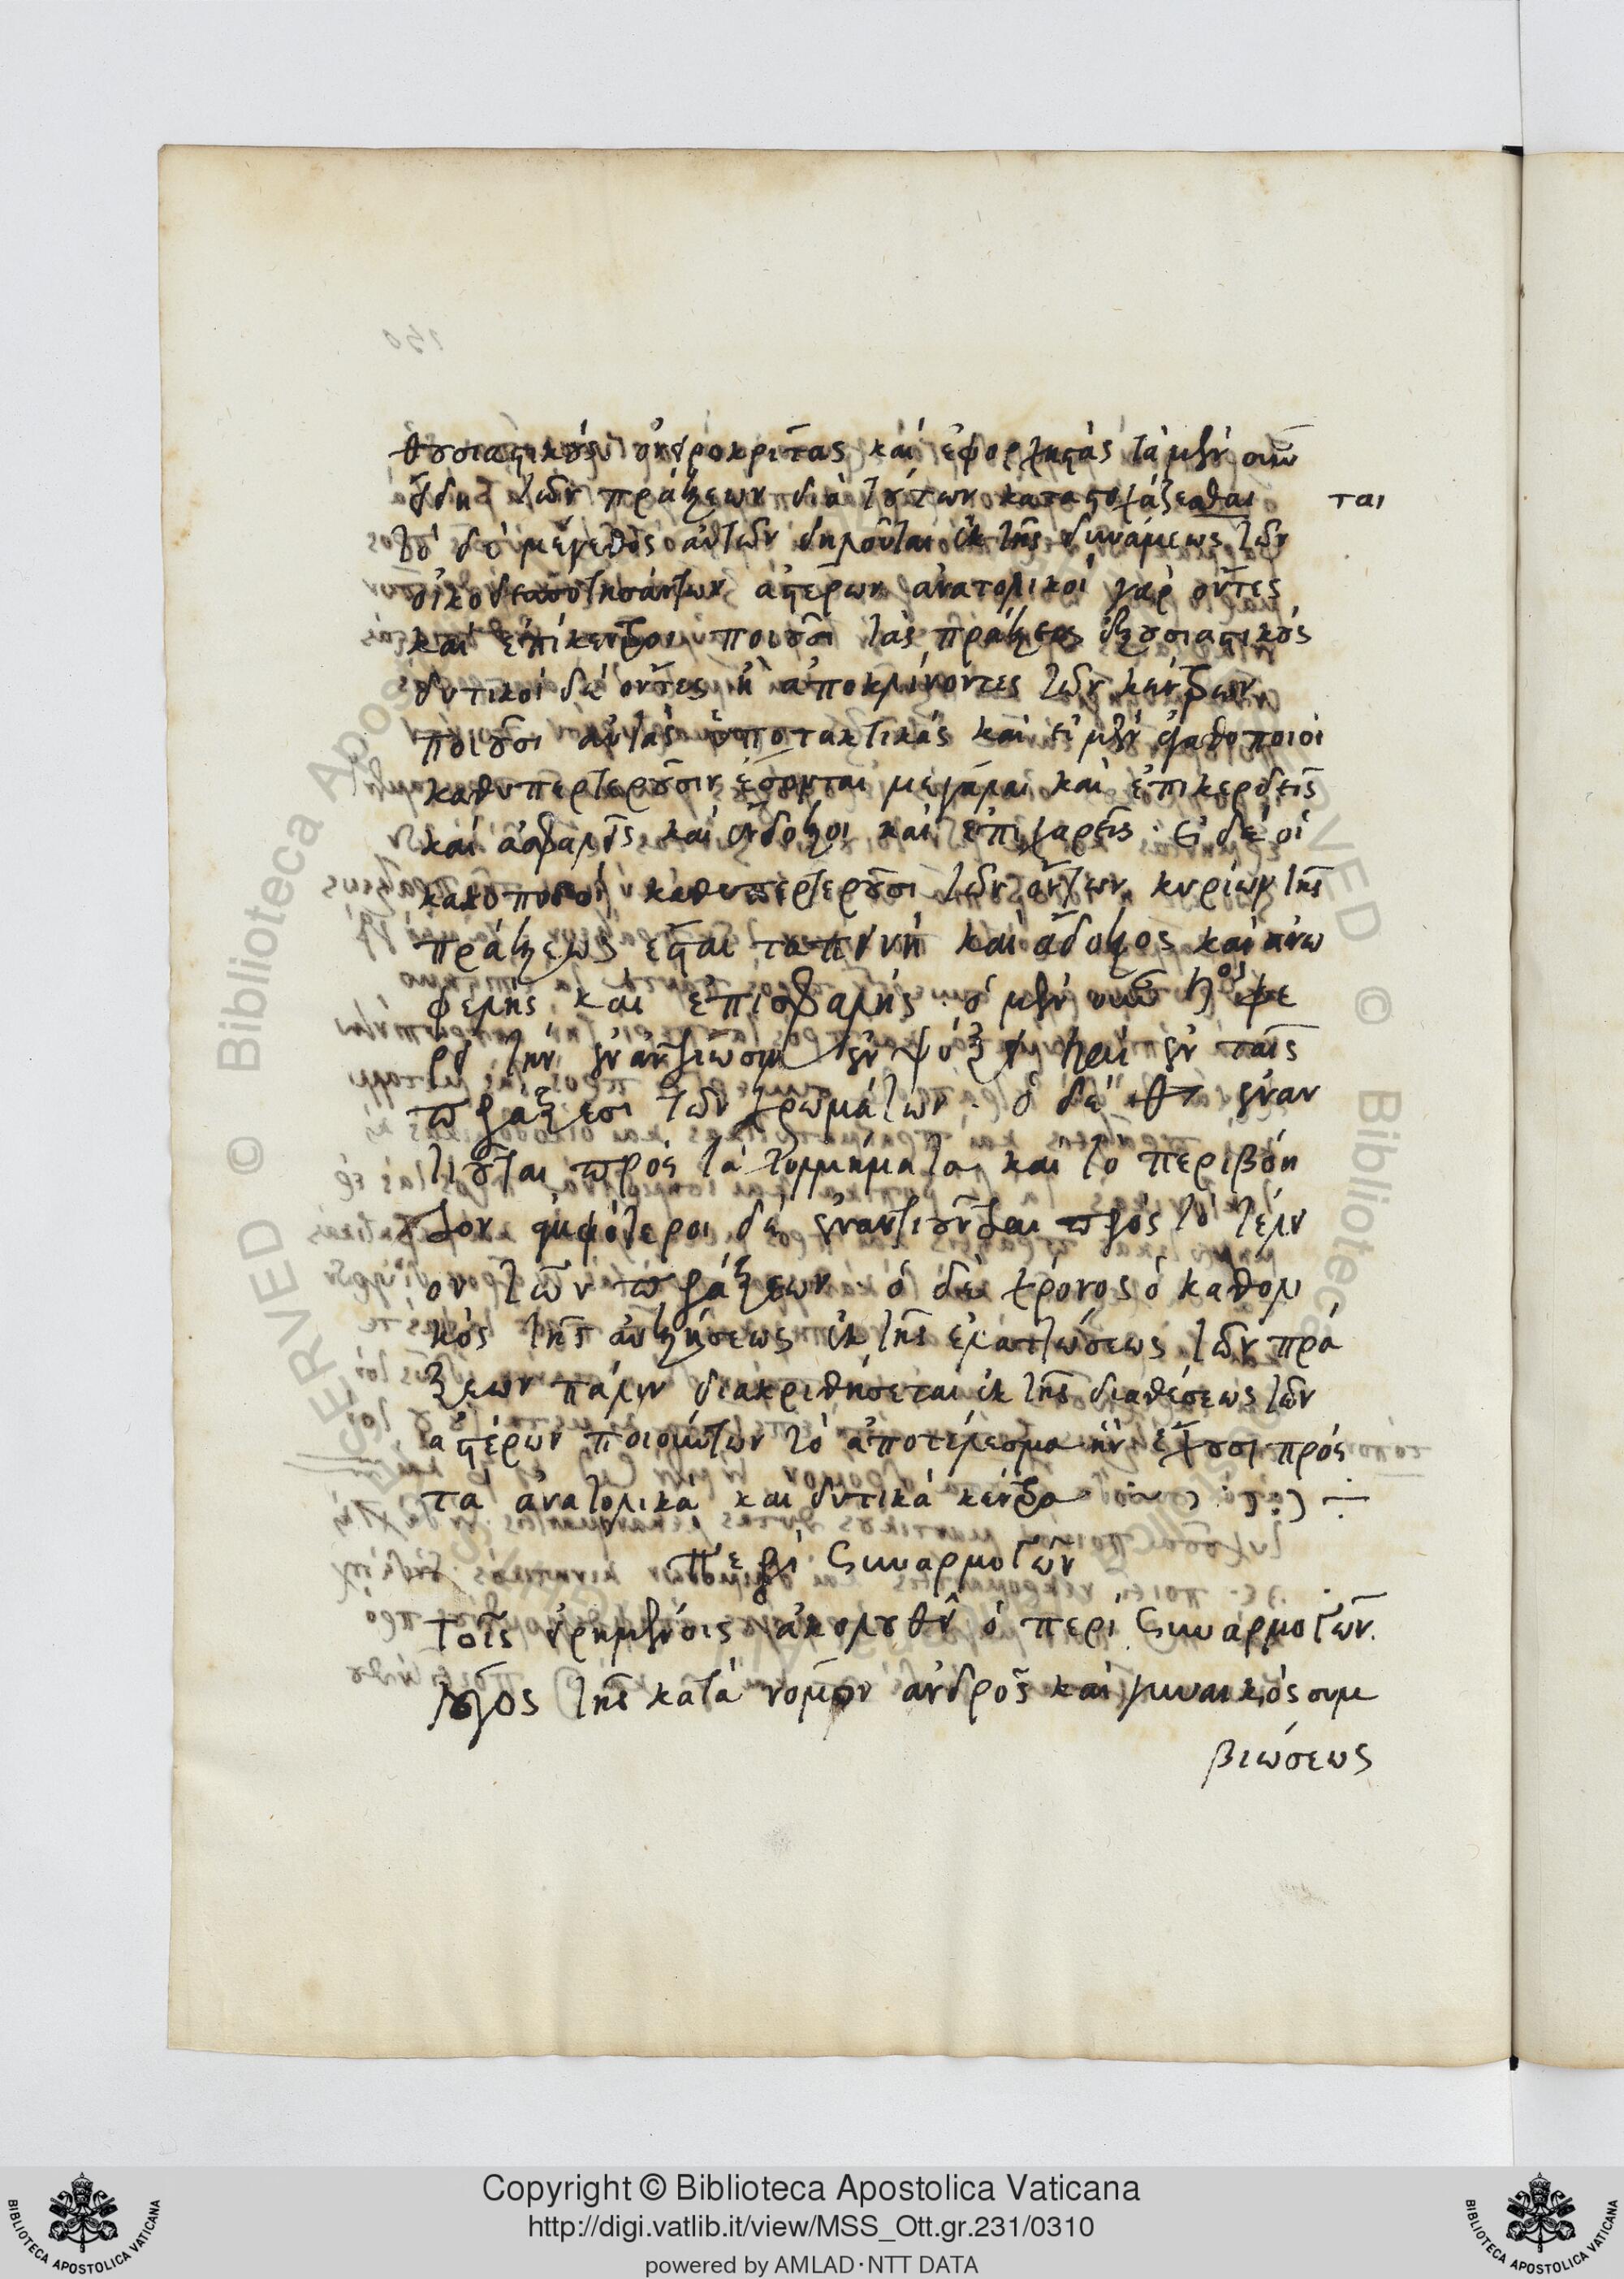 θουσιαστικοὺς ὀνειροκρίτας καὶ ἐφορκιστὰς τὰ μὲν οὖν
εἴδη τῶν πράξεων διὰ τούτων καταστοχάζεσθαι ται
τὸ δὲ μέγεθος αὐτῶν δηλοῦται ἐκ τῆς δυνάμεως τῶν
οἰκοδεσποτησάντων ἀστέρων ἀνατολικοὶ γὰρ ὄντες
καὶ ἐπίκεντροι ποιοῦσι τὰς πράξεις ἐξουσιαστικάς
δυτικοὶ δὲ ὄντες ἢ ἀποκλίνοντες τῶν κέντρων
ποιοῦσι αὐτὰς ὑποτακτικάς καὶ εἰ μὲν ἀγαθοποιοὶ
καθυπερτεροῦσιν ἔσονται μεγάλαι καὶ ἐπικερδεῖς
καὶ ἀσφαλεῖς καὶ ἔνδοξοι καὶ ἐπιχαρεῖς · εἰ δὲ οἱ
κακοποιοὶ καθυπερτεροῦσι τῶν ὄντων κυρίων τῆς
πράξεως ἔσται ταπεινὴ καὶ ἄδοξος καὶ ἀνω
φελής καὶ ἐπισφαλής · ὁ μὲν οὖν ♄ος φε
ρει τὴν ἐναντίωσιν ἐν ψύξει καὶ ἐν ταῖς
πράξεσι τῶν χρωμάτων · ὁ δὲ ἐναν
τιοῦται πρὸς τὰ τολμήματα καὶ τὸ περιβόη
τον ἀμφότεροι δὲ ἐναντιοῦνται πρὸς τὸ τέλει
ον τῶν πράξεων · ὁ δὲ χρόνος ὁ καθολι
κός τῆς αὐξήσεως ἐκ τῆς ἐλαττώσεως τῶν πρά
ξεων πάλιν διακριθήσεται ἐκ τῆς διαθέσεως τῶν
ἀστέρων ποιούντων τὸ ἀποτέλεσμα ἣν ἔχουσι πρὸς
τὰ ἀνατολικὰ καὶ δυτικὰ κέντρα
Περὶ συναρμογῶν
τοῖς εἰρημένοις ἀκολουθεῖ ὁ περὶ συναρμογῶν
λόγος τῆς κατὰ νόμον ἀνδρὸς καὶ γυναικὸς συμ
βιώσεως
Copyright © Biblioteca Apostolica Vaticana
http://digi.vatlib.it/view/MSS_Ott.gr.231/0310
powered by AMLAD·NTT DATA